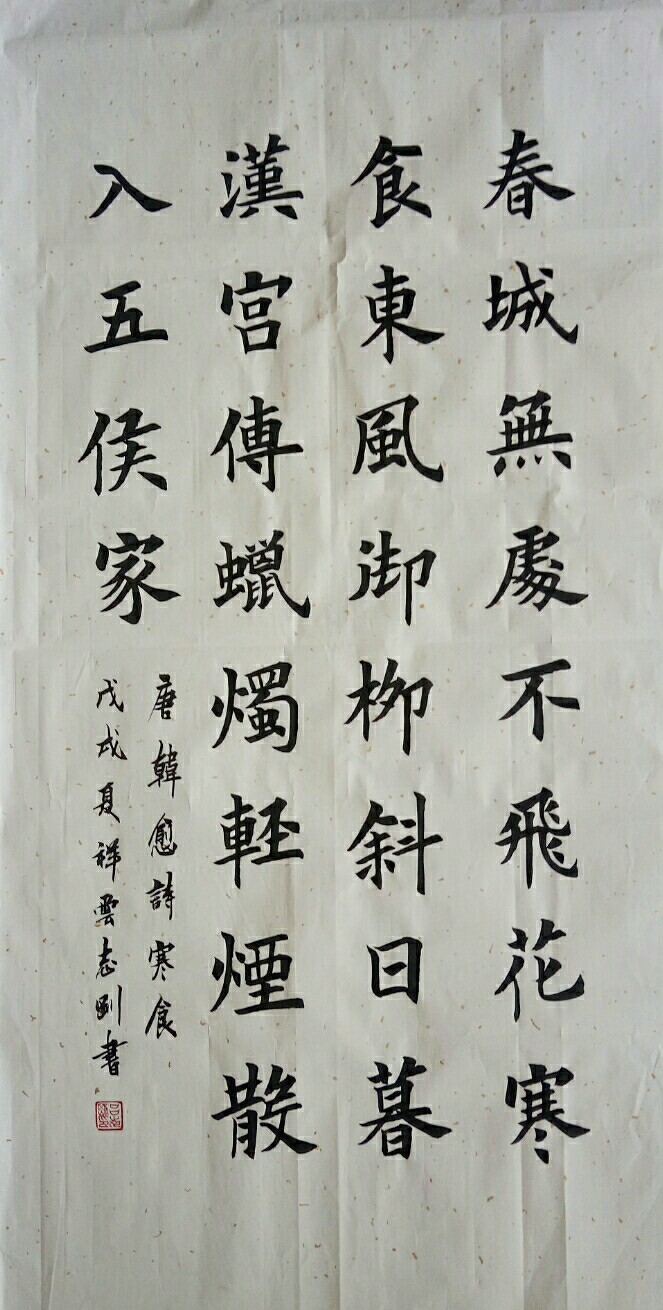 春城無處不飛花寒
食東風御柳斜日暮
漢宮傳蠟燭軽煙散
入五侯家
唐韓愈詩寒食
戊戌夏祥雲志刚書